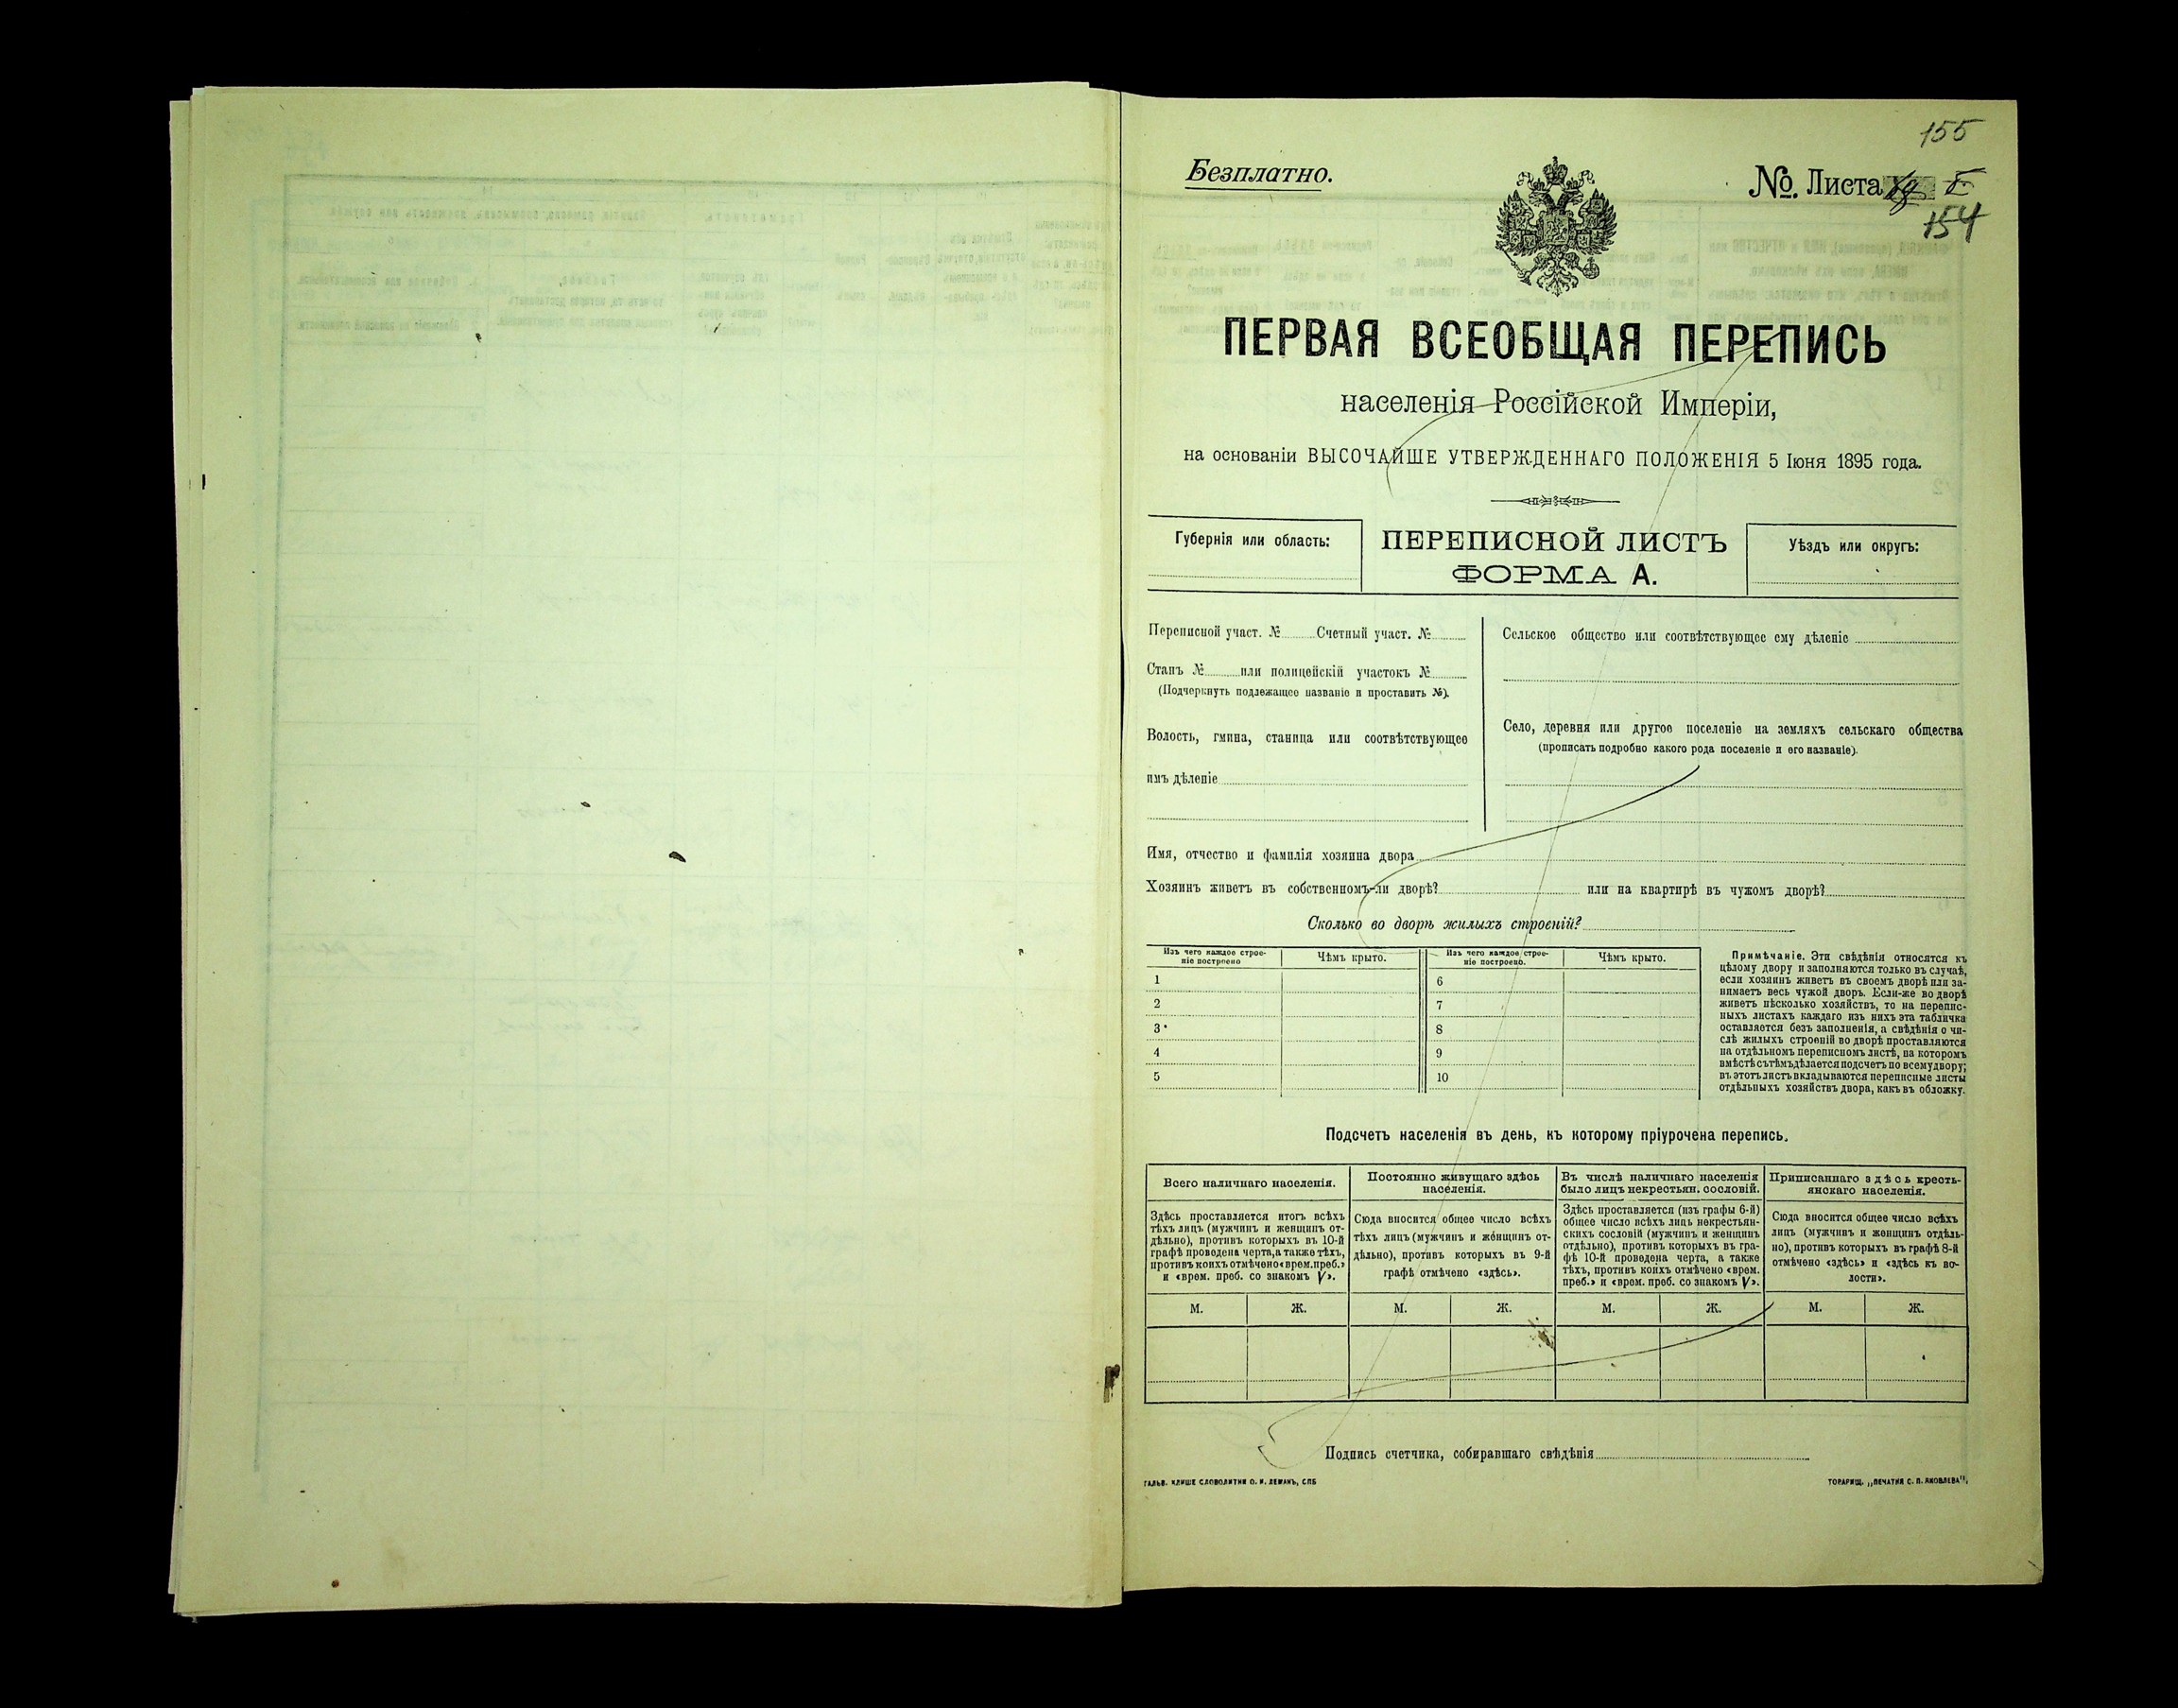 155
Безплатно.
№. Листа
154
ПЕРВАЯ ВСЕОБЩАЯ ПЕРЕПИСЬ
населенія Россійской Имперіи,
на основаніи ВЫСОЧАЙШЕ УТВЕРЖДЕННАГО ПОЛОЖЕНІЯ 5 Іюня 1895 года.
Губернія или область:
ПЕРЕПИСНОЙ ЛИСТЪ
ФОРМА А.
Уѣздъ или округъ:
Переписной участ. № Счетный участ. №
Станъ № или полицейскій участокъ №
(Подчеркнуть подлежащее названіе и проставить №).
Волость, гмина, станица или соотвѣтствующее
имъ дѣленіе
Сельское общество или соотвѣтствующее ему дѣленіе
Село, деревня или другое поселеніе на земляхъ сельскаго общества
(прописать подробно какого рода поселеніе и его названіе).
Имя, отчество и фамилія хозяина двора
Хозяинъ живетъ въ собственномъ-ли дворѣ? или на квартирѣ въ чужомъ дворѣ?
Сколько во дворѣ жилыхъ строеній?
Изъ чего каждое строе-
ніе построено
Чѣмъ крыто.
1
2
3
4
5
Изъ чего каждое строе-
ніе построено.
Чѣмъ крыто.
6
7
8
9
10
Примѣчаніе. Эти свѣдѣнія относятся къ
цѣлому двору и заполняются только въ случаѣ,
если хозяинъ живетъ въ своемъ дворѣ или за-
нимаетъ весь чужой дворъ. Если-же во дворѣ
живетъ нѣсколько хозяйствъ, то на перепис-
ныхъ листахъ каждаго изъ нихъ эта табличка
оставляется безъ заполненія, а свѣдѣнія о чи-
слѣ жилыхъ строеній во дворѣ проставляются
на отдѣльномъ переписномъ листѣ, на которомъ
вмѣстѣ съ тѣмъ дѣлается подсчетъ по всему двору;
въ этотъ листъ вкладываются переписные листы
отдѣльныхъ хозяйствъ двора, какъ въ обложку.
Подсчетъ населенія въ день, къ которому пріурочена перепись.
Всего наличнаго населенія.
Здѣсь проставляется итогъ всѣхъ
тѣхъ лицъ (мужчинъ и женщинъ от-
дѣльно), противъ которыхъ въ 10-й
графѣ проведена черта, а также тѣхъ,
противъ коихъ отмѣчено «врем. преб.»
и «врем. преб. со знакомъ V».
М. Ж.
Постоянно живущаго здѣсь
населенія.
Сюда вносится общее число всѣхъ
тѣхъ лицъ (мужчинъ и женщинъ от-
дѣльно), противъ которыхъ въ 9-й
графѣ отмѣчено «здѣсь».
М. Ж.
Въ числѣ наличнаго населенія
было лицъ некрестьян. сословій.
Здѣсь проставляется (изъ графы 6-й)
общее число всѣхъ лицъ некрестьян-
скихъ сословій (мужчинъ и женщинъ
отдѣльно), противъ которыхъ въ гра-
фѣ 10-й проведена черта, а также
тѣхъ, противъ коихъ отмѣчено «врем.
преб.» и «врем. преб. со знакомъ V».
М. Ж.
Приписаннаго здѣсь кресть-
янскаго населенія.
Сюда вносится общее число всѣхъ
лицъ (мужчинъ и женщинъ отдѣль-
но), противъ которыхъ въ графѣ 8-й
отмѣчено «здѣсь» и «здѣсь къ во-
лости».
М. Ж.
Подпись счетчика, собиравшаго свѣдѣнія
ГАЛЬВ. КЛИШЕ СЛОВОЛИТНИ О. И. ЛЕМАНЪ, СПБ
ТОВАРИЩ. „ПЕЧАТНЯ С. П. ЯКОВЛЕВА“.